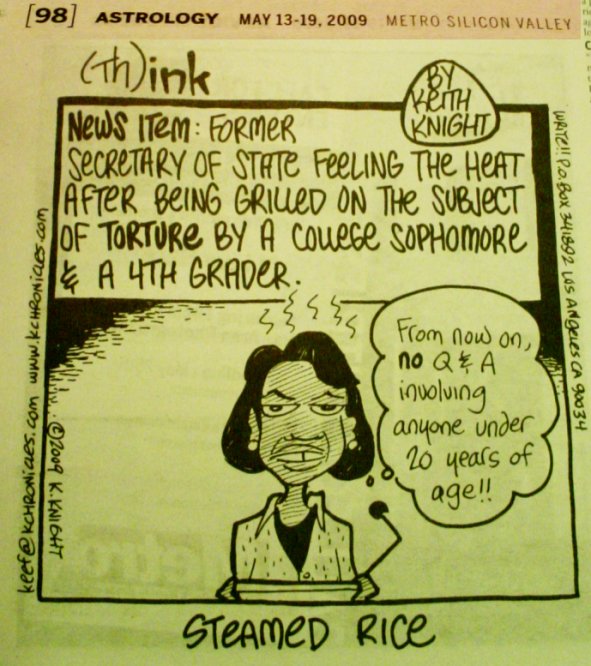 [98] ASTROLOGY MAY 13-19, 2009 METRO SILICON VALLEY
(Th)ink
BY
KEITH
KNIGHT
NEWS ITEM: FORMER
SECRETARY OF STATE FEELING THE HEAT
AFTER BEING GRILLED ON THE SUBJECT
OF TORTURE BY A COLLEGE SOPHOMORE
& A 4TH GRADER.
From now on,
no Q & A
involving
anyone under
20 years of
age!!
keef@kchronicles.com www.kchronicles.com
©2009 K. KNIGHT
WRITE!! P.O. BOX 341892 LOS ANGELES CA 90034
STEAMED RICE